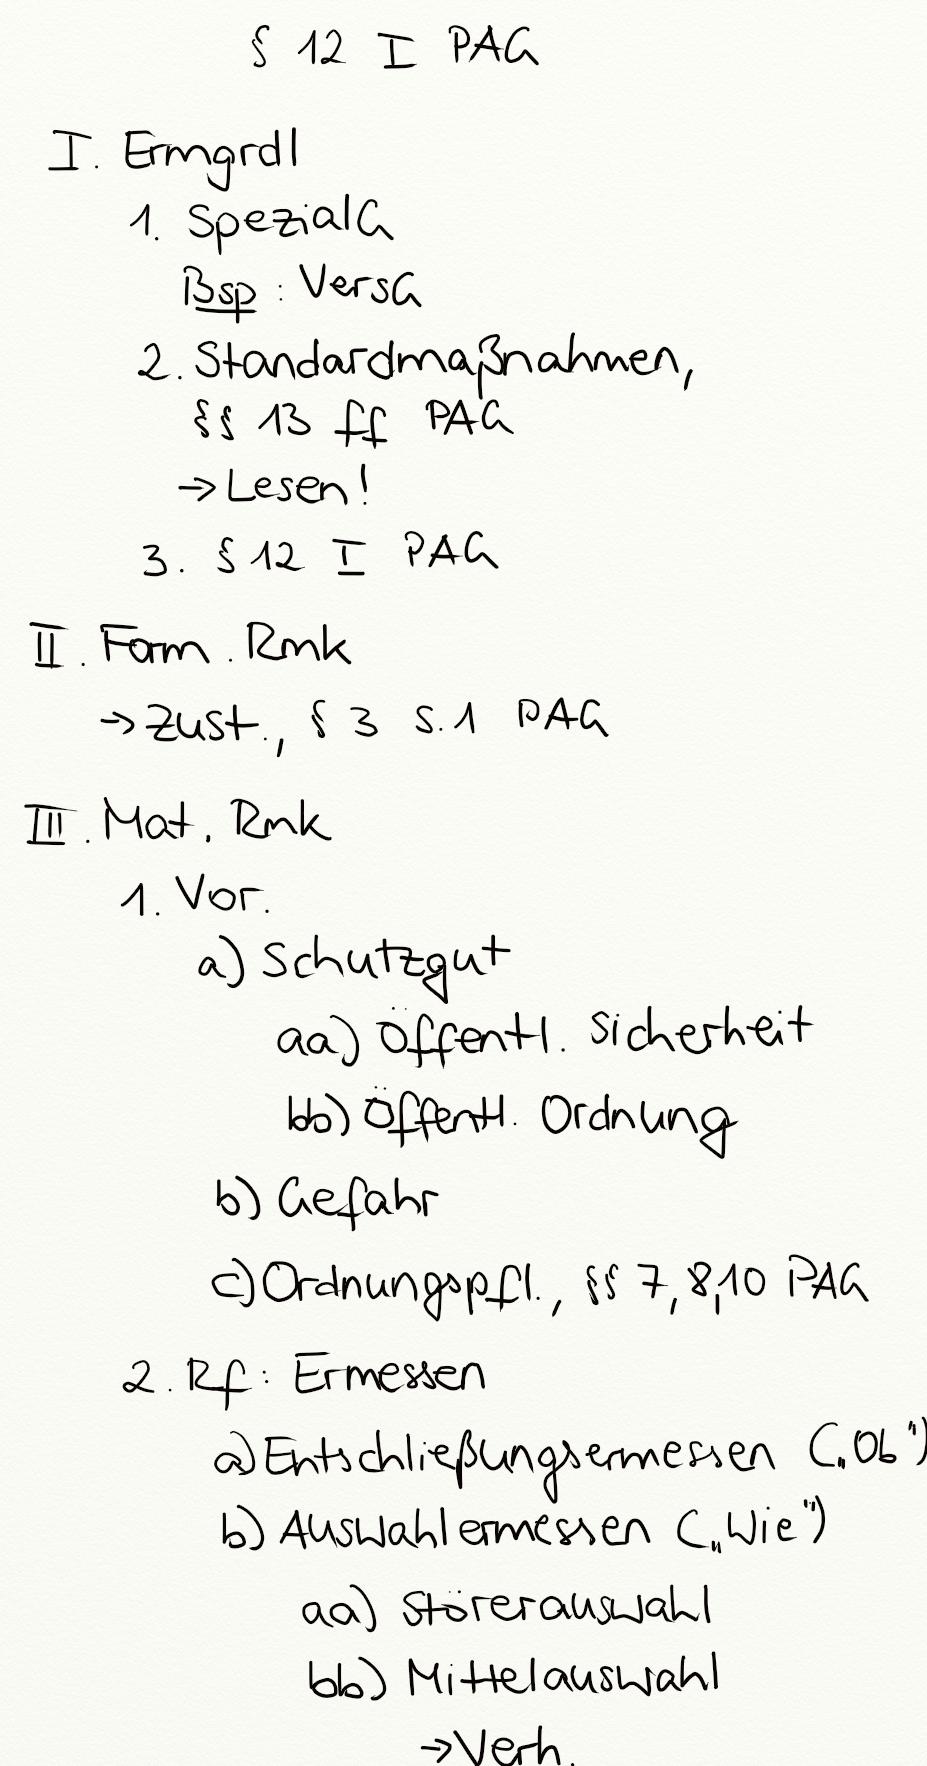 § 12 I PAG
I. Ermgrdl
1. SpezialG
Bsp: VersG
2. Standardmaßnahmen,
§§ 13 ff PAG
→ Lesen!
3. § 12 I PAG
II. Form. Rmk
→ Zust., § 3 S. 1 PAG
III. Mat. Rmk
1. Vor.
a) Schutzgut
aa) Öffentl. Sicherheit
bb) Öffentl. Ordnung
b) Gefahr
c) Ordnungspfl., §§ 7, 8, 10 PAG
2. Rf: Ermessen
a) Entschließungsermessen („Ob")
b) Auswahlermessen („Wie")
aa) Störerauswahl
bb) Mittelauswahl
→ Verh.